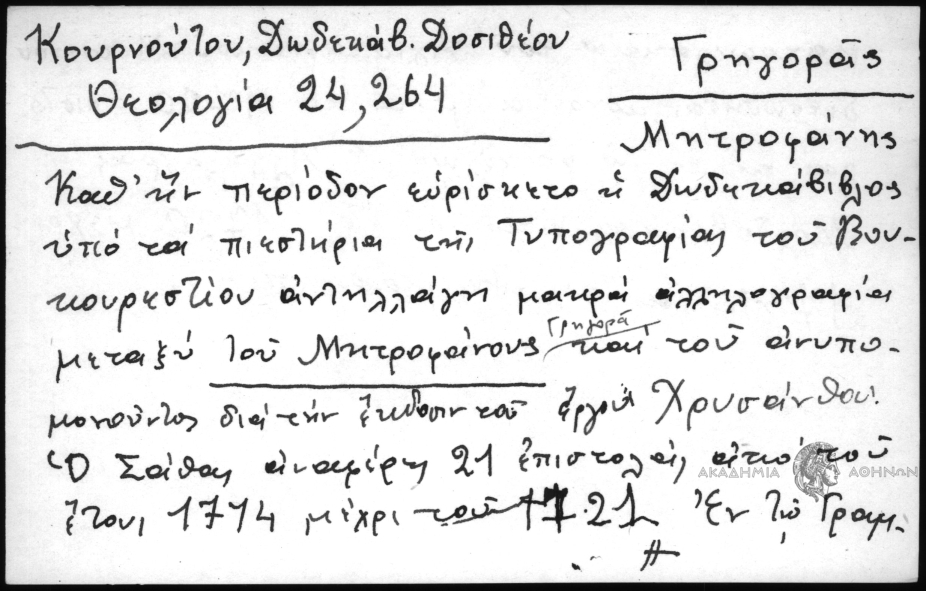 Κουρνούτου, Δωδεκάβ. Δοσιθέου
Θεολογία 24, 264
Γρηγορᾶς
Μητροφάνης
Καθ' ἥν περίοδον εὑρίσκετο ἡ Δωδεκάβιβλος
ὑπό τά πιεστήρια τῆς Τυπογραφίας τοῦ Βου-
κουρεστίου ἀντηλλάγη μακρά ἀλληλογραφία
μεταξύ τοῦ Μητροφάνους Γρηγορᾶ καί τοῦ ἀνυπο-
μονοῦντος διά τήν ἔκδοσιν τοῦ ἔργου Χρυσάνθου.
Ὁ Σάθας ἀναφέρει 21 ἐπιστολάς ἀπό τοῦ
ἔτους 1714 μέχρι τοῦ 1721. Ἐν τῷ Γραμ.
ΑΚΑΔΗΜΙΑ ΑΘΗΝΩΝ